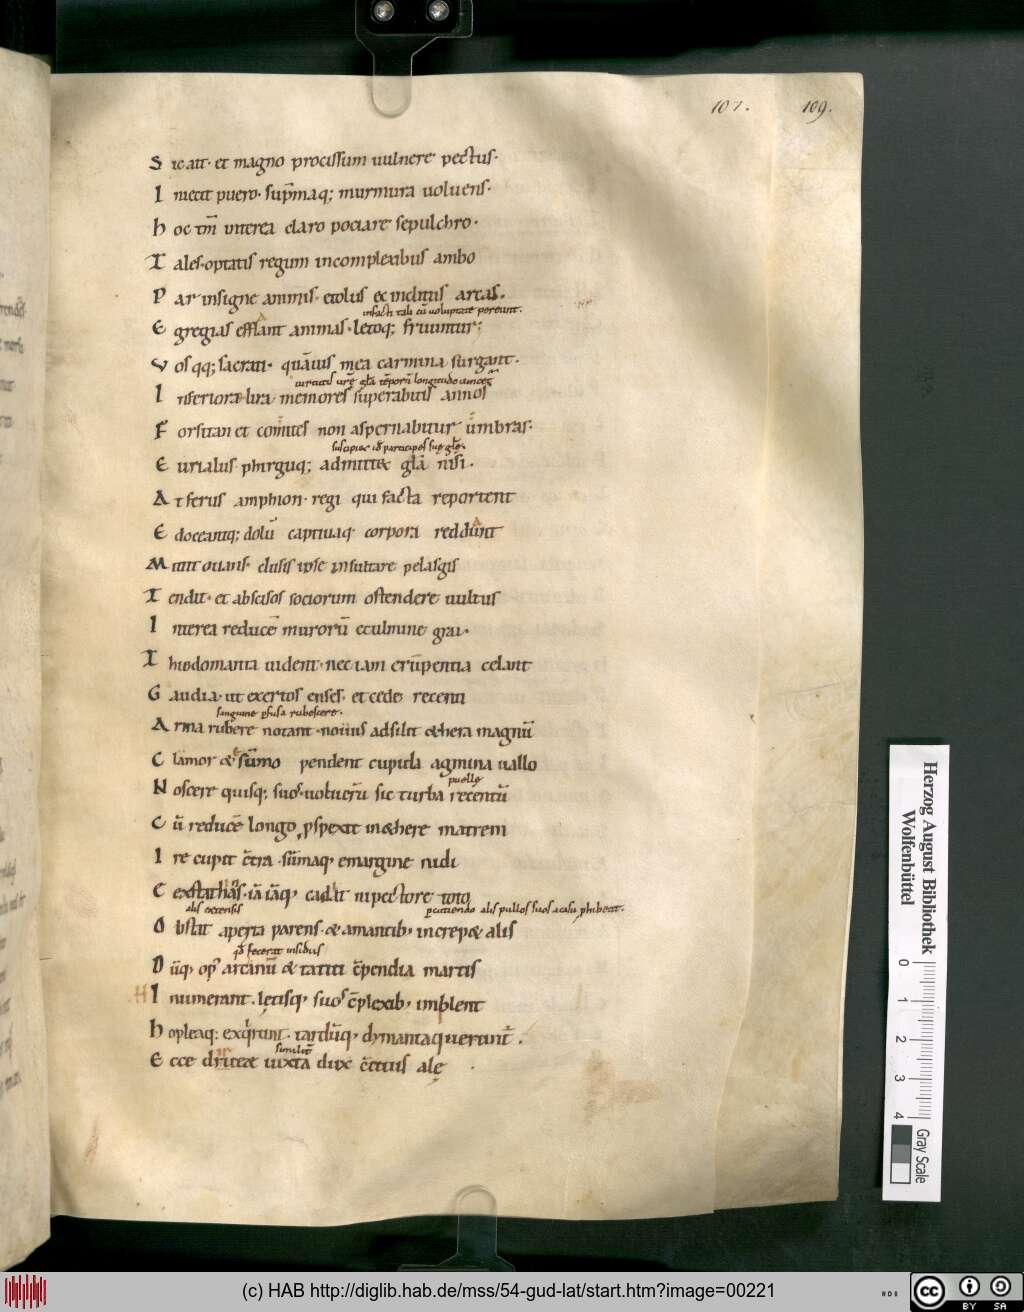 107. 109.
S ic ait· et magno procissum uulnere pectus·
I niecit puero· sup̄maq; murmura uoluens·
h oc tm̄ interea claro pociare sepulchro·
T ales·optatis regum incomplexibus ambo
P ar insigne animis· etolus ec inclitus arcas.
infacti tali cū uoluptate pereunt.
E gregias efflant animas·letoq; fruuntur;
V os qq; sacrati· quāuis mea carmina surgant·
I nferiora lira· memores superabitis annos
F orsitan et comites non aspernabitur umbras·
E urialus phirgiuq; admittet gl̄a nisi·
A t ferus amphion· regi qui facta reportent
E doceantq; dolū captiuaq corpora reddunt
M ittit ouans· elusis ipse insultare pelasgis
T endit· et abscisos sociorum ostendere uultus
I nterea reducē murorū eculmine grai·
T hiodomanta uident· nec iam erūpentia celant
G audia· ut exertos enses· et cede recenti
sanguine pfusa rubescere·
A rma rubere notant·nouus adsilit ethera magnū
C lamor et sūmo pendent cupida agmina uallo
puelle
N oscere quisq; suos·uolucrū sic turba recentū
C ū reducē longo pspexit inethere matrem
I re cupit c̄tra·sūmaq; emargine nidi
C exstat hians·iā iāq; cadit ni pectore toto
alis extensis pcutiendo alis pullos suos acasu phibeat·
O bstat aperta parens·et amantib; increpet alis
qd fecerat insidiis
D ūq; op' arcanū et taciti c̄pendia martis
I numerant·letisq; suos c̄plexib; implent
h opleaq; exqrunt·tardūq; dymantaq uerunt·
E cce driceæ iuxta dux c̄citus ale
Herzog August Bibliothek
Wolfenbüttel
0 1 2 3 4
Gray Scale
(c) HAB http://diglib.hab.de/mss/54-gud-lat/start.htm?image=00221
cc BY SA